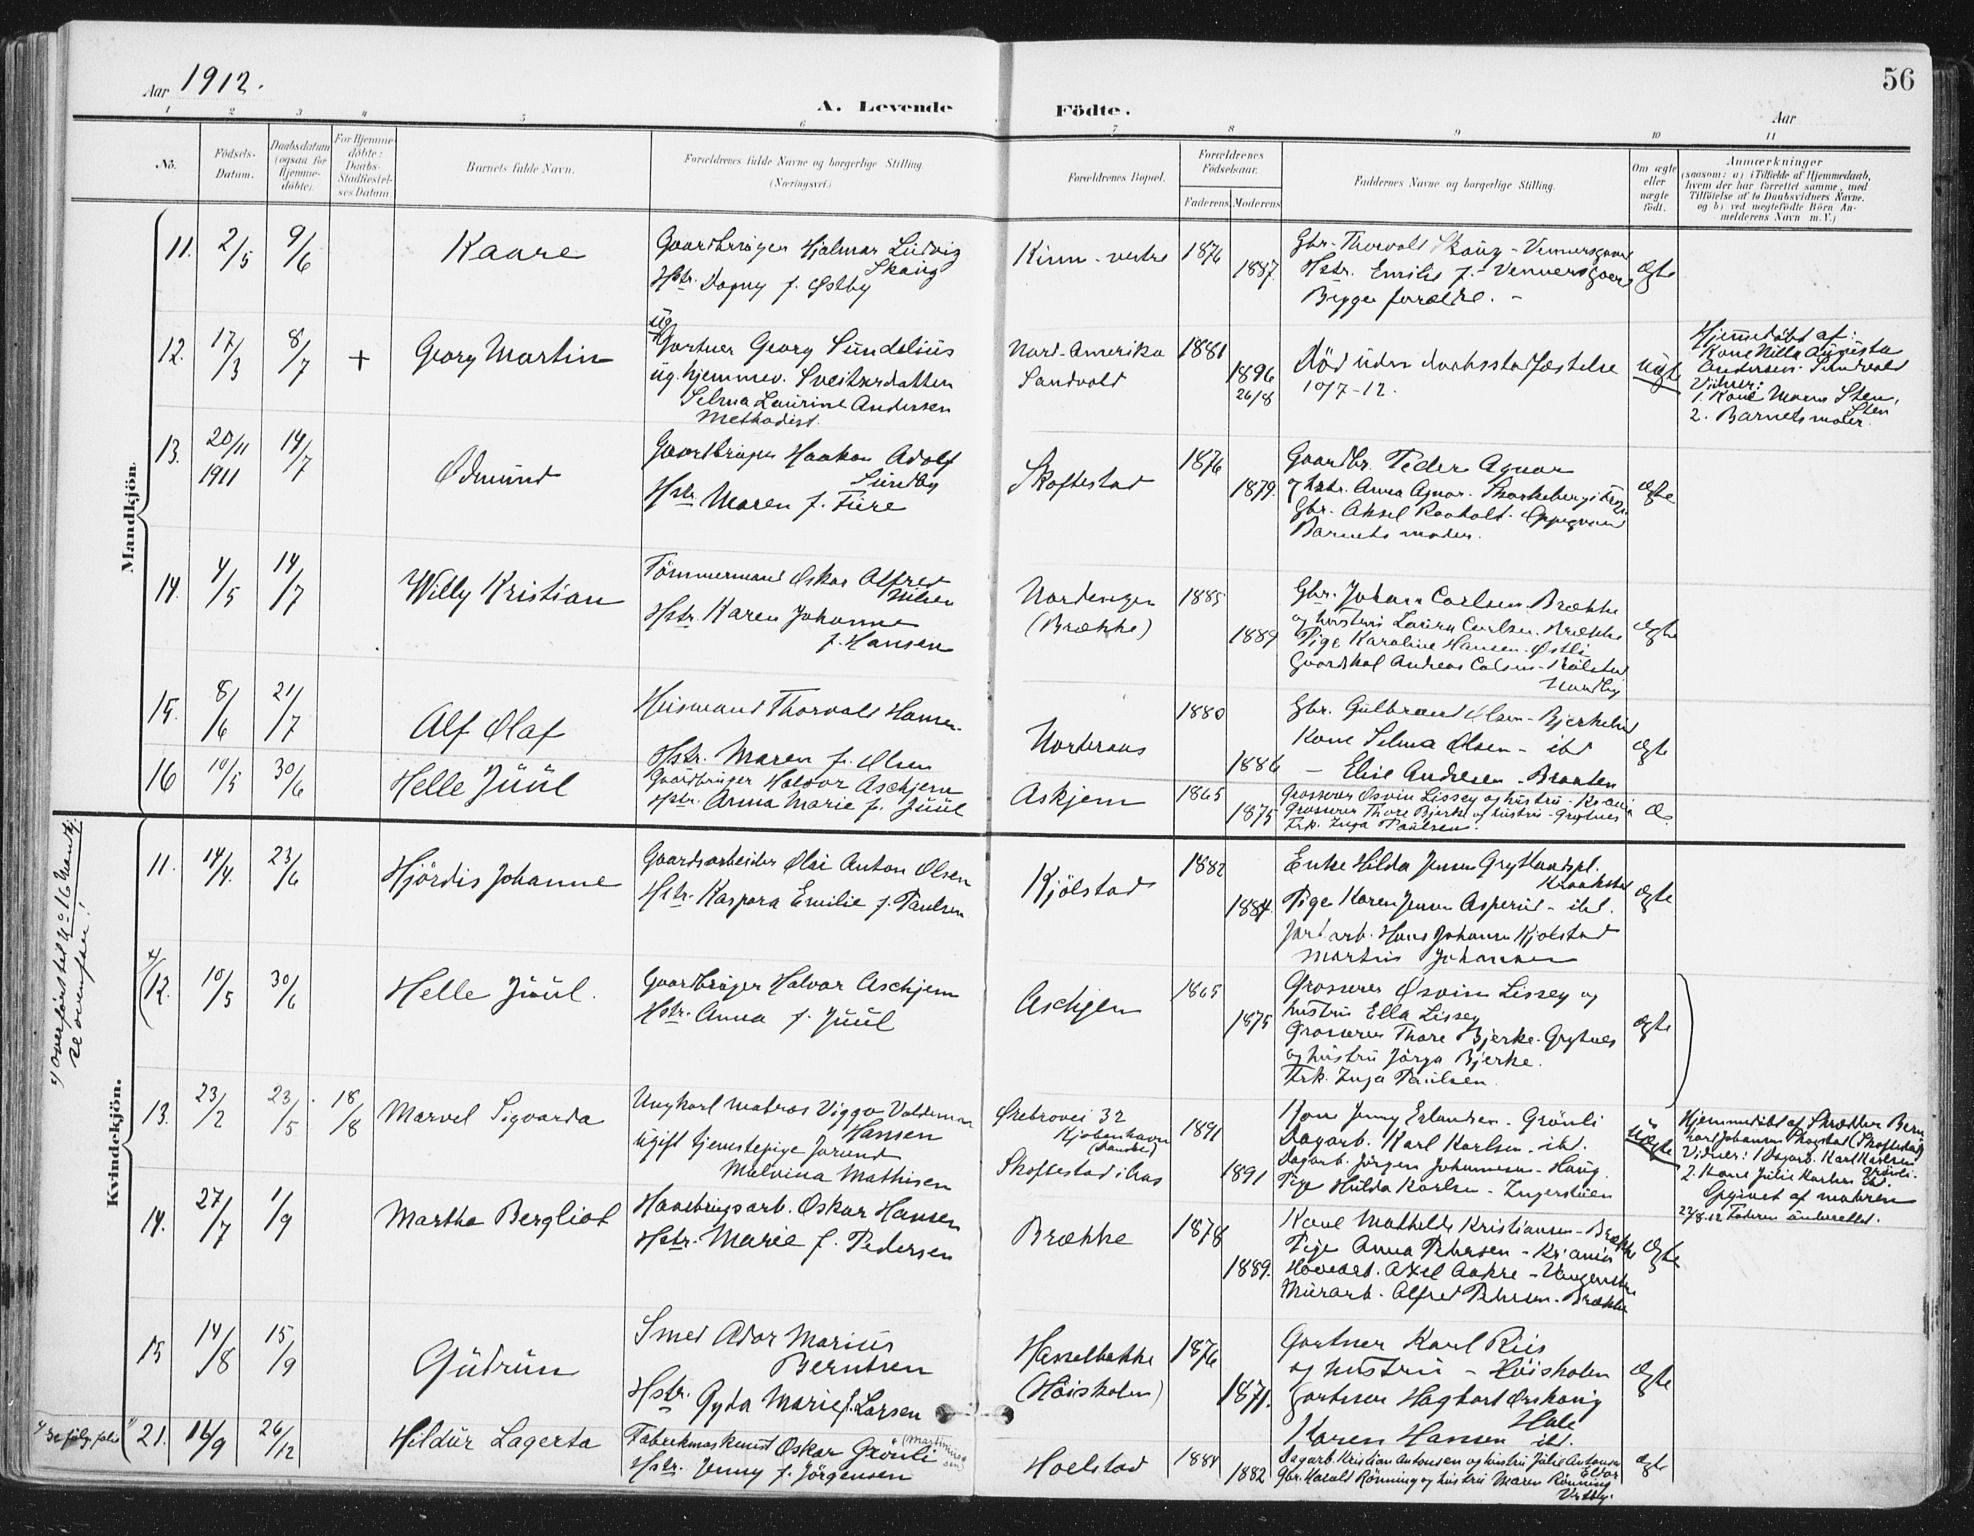 Aar 1912.
56
A. Levende Födte.
Aar
1 2 3 4 5 6 7 8 9 10 11
No.
Födsels-Datum.
Daabsdatum (ogsaa for Hjemmedöbte).
For Hjemmedöbte: Daabs-Stadfæstelses Datum.
Barnets fulde Navn.
Forældrenes fulde Navne og borgerlige Stilling.
(Næringsvei.)
Forældrenes Bopæl.
Forældrenes Födselsaar.
Faderens Moderens
Faddernes Navne og borgerlige Stilling.
Om ægte eller uægte födt.
Anmærkninger
(saasom: a) i Tilfælde af Hjemmedaab,
hvem der har forrettet samme, med
Tilföielse af to Daabsvidners Navne,
og b) ved uegtefödte Börn An-
melderens Navn m. V.)
Mandkjön.
11. 2/5 9/6 Kaare
Gaardbruger Hjalmar Ludvig
Skaug
Hstr. Dagny f. Østby
Kinn - vestre 1876
1887.
Gbr. Thorvald Skaug - Vennersgaard
Hstr. Emilie f. - Vennersgaard
Begge forældre. -
ægte
12. 17/3 8/7 + Georg Martin
ug
Gartner Georg Sundelius
ug. hjemmev. Sveitserdatter
Selma Laurine Andersen
Methodist.
Nord-Amerika
Sandvold
1881
1896
26/8
Död uden daabsstadfæstelse
10/7-12.
uægte
Hjemmedöbt af:
Kone Milla Augusta
Andersen. Sandvold
Vidner:
1. Kone Maren Sten,
Sten
2. Barnets moder.
13. 20/11 1911 14/7 Ødmund
Gaardbruger Haakon Adolf
Sundby
Hstr. Maren f. Fure
Skoftestad
1876
1879.
Gaardbr. Peder Agnor
Hstr. Anna Agnor.
Gbr. Aksel Raaholt. Oppegaard
Barnets moder.
ægte
14. 4/5 14/7 Willy Kristian
Tömmermand Oskar Alfred
Nilsen
Hstr. Karen Johanne
f. Hansen
Nordengen
(Brække)
1885
1889
Gbr. Johan Carlsen. Brække
og hustru Laura Carlsen. Brække
Pige Karoline Hansen. Østli
Gaardskal Andreas Carlsen
Nordby
ægte
15. 8/6 21/7 Alf Olaf
Husmand Thorvald Hansen.
Hstr. Maren f. Olsen
Norderaas
1880
1886
Gbr. Gulbrand Olsen - Bjerkelund
Kone Selma Olsen - ibd
- Elise Andresen - Braaten
ægte
16 10/5 30/6 Helle Juul
Gaardbruger Halvor Aschjem
Hstr. Anna Marie f. Juul
Askjem
1865
1875
Grosserer Osvin Lissey og hustru - Kr.ania
Grosserer Thore Bjerke og hustru - Grytnes
Frk. Inga Paulsen.
Æ.
Kvindekjön.
x/ overförstet No 16 Mandkj.
se ovenfor!
11. 14/4. 23/6 Hjördis Johanne
Gaardsarbeider Olai Anton Olsen
Hstr. Kaspara Emilie f. Paulsen
Kjölstad
1882
1884.
Enke Hilda Jensen Grytlandspl.
Kraakstad
Pige Karen Jensen Asperud - ibd.
Jordarb. Hans Johansen Kjølstad
Martin Johansen
ægte
x/
(12. 10/5 30/6 Helle Juul.
Gaardbruger Halvor Aschjem
Hstr. Anna f. Juul
Aschjem
1865
1875
Grosserer Osvin Lissey og
hustru Ella Lissey
Grosserer Thore Bjerke. Grytnes
og hustru Jörga Bjerke.
Frk. Inga Paulsen.
ægte
13. 23/2 23/5 18/8 Marvel Sigvarda
Ungkarl matros Viggo Valdemar
Hansen
ugift tjenestepige Jorund
Malvina Mathisen
Ørebrovei 32
Kjöbenhavn
(Dansk)
Skoftestad i Aas
1891
1891
Kone Jenny Erlandsen - Grönli
Dagarb. Karl Karlsen. ibd.
Dagarb. Jörgen Johannesen - Haug
Pige Hilda Karlsen - Ingerstuen
uægte
Hjemmedöbt af Skrædder Bern
hard Johansen Skogstad (Skoftestad)
Vidner: 1 Dagarb. Karl Karlsen
Grönli.
2. Kone Julie Karlsen ibd.
Opgivet af moderen
22/8.12 Faderen underrettet.
14. 27/7 1/9 Martha Bergliot
Havebrugsarb. Oskar Hansen
Hstr. Marie f. Pedersen
Brække
1878
1889.
Kone Mathilde Kristiansen - Brække
Pige Anna Pedersen - Kr.ania
Havearb. Axel Aakre - Vangen
Murarb. Alfred Pedersen - Brække
ægte
15 14/8 15/9 Gudrun
Smed Ador Marius
Berntsen
Hstr. Gyda Marie f. Larsen
Hasselbakke
(Høisholen)
1876
1871.
Gartner Karl Riis
og hustru - Høisholen
Gartner Hagbart Ørskaug
Hole
Karen Hansen ibd.
ægte
x/ se fölg. folio
21. 16/9 26/12 Hildur Lagerta
Fabrikmaskinist Oskar Grönli (Martiniussen)
Hstr. Jenny f. Jörgensen
Holstad
1884
1882
Dagarb. Kristian Antonsen og hustru Julie Antonsen
Eldor
Gbr. Harald Rönning og hustru Maren Rönning
Vestby.
ægte